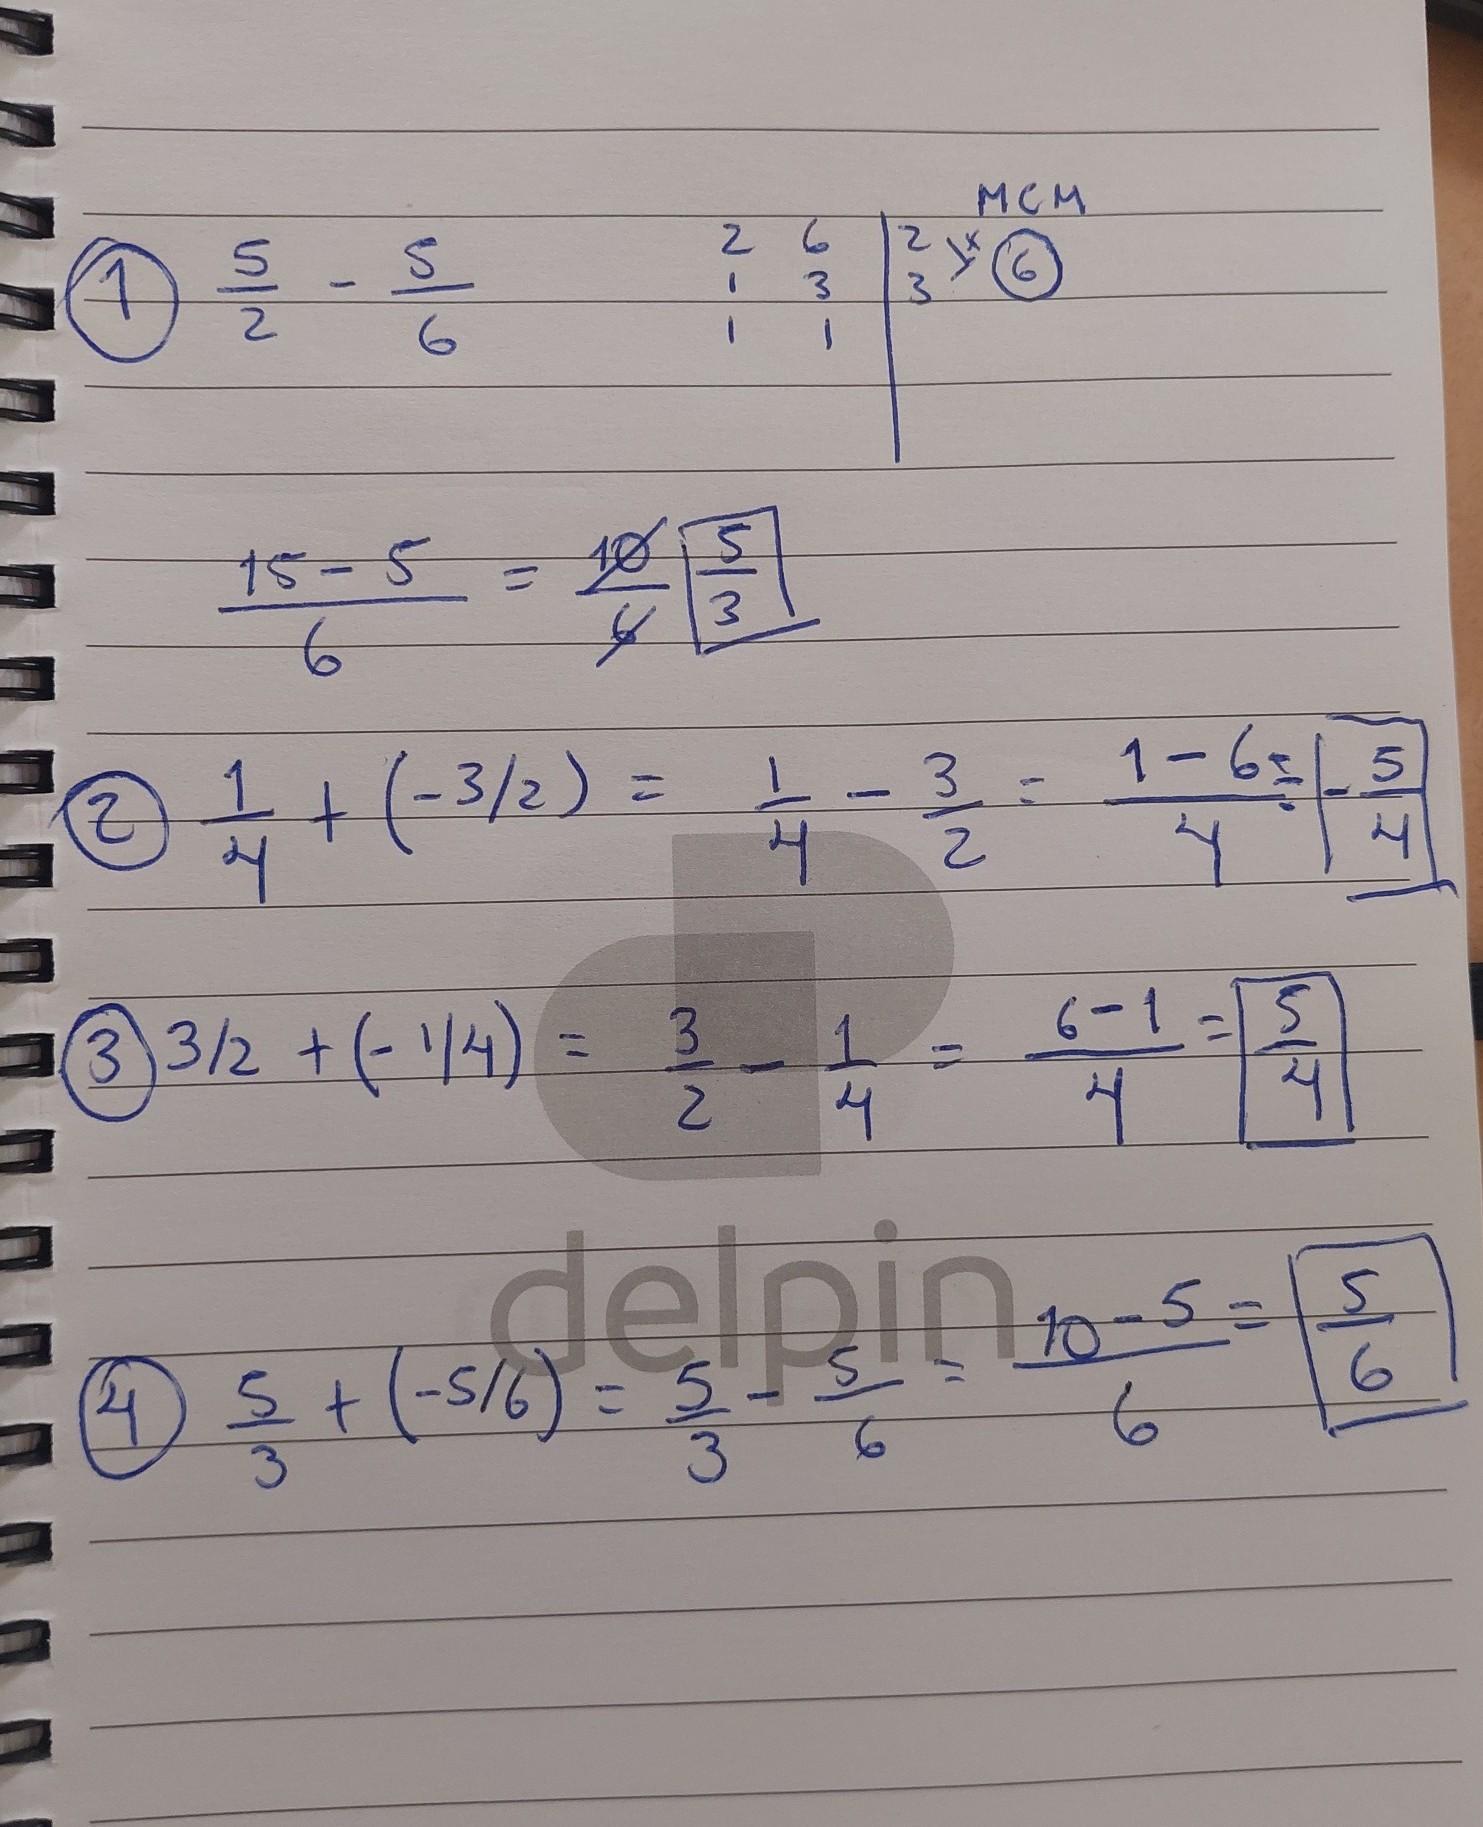 MCM
① 5/2 - 5/6   2 6 | 2 × ⑥
1 3 | 3
1 1 |
(15 - 5)/6 = 10/6 5/3
② 1/4 + (-3/2) = 1/4 - 3/2 = (1 - 6)/4 = -5/4
③ 3/2 + (-1/4) = 3/2 - 1/4 = (6 - 1)/4 = 5/4
delpin
④ 5/3 + (-5/6) = 5/3 - 5/6 = (10 - 5)/6 = 5/6